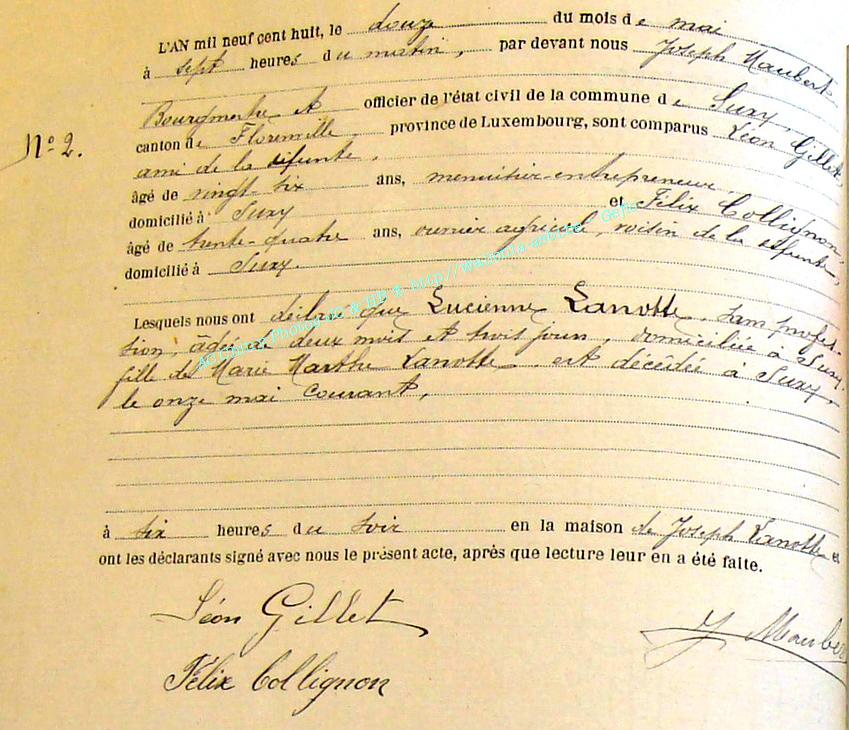 L'AN mil neuf cent huit, le douze du mois de mai
à sept heures du matin, par devant nous Joseph Maubert
Bourgmestre et officier de l'état civil de la commune de Suxy,
canton de Florenville, province de Luxembourg, sont comparus Léon Gillet,
N° 2.
ami de la défunte,
âgé de vingt-six ans, menuisier-entrepreneur,
domicilié à Suxy et Félix Collignon,
âgé de trente-quatre ans, ouvrier agricole, voisin de la défunte,
domicilié à Suxy.
Lesquels nous ont déclaré que Lucienne Lanotte, sans profes-
sion, âgée de deux mois et trois jours, domiciliée à Suxy,
fille de Marie Marthe Lanotte, est décédée à Suxy,
le onze mai courant,
à six heures du soir en la maison de Joseph Lanotte et
ont les déclarants signé avec nous le présent acte, après que lecture leur en a été faite.
Léon Gillet
J Maubert
Félix Collignon